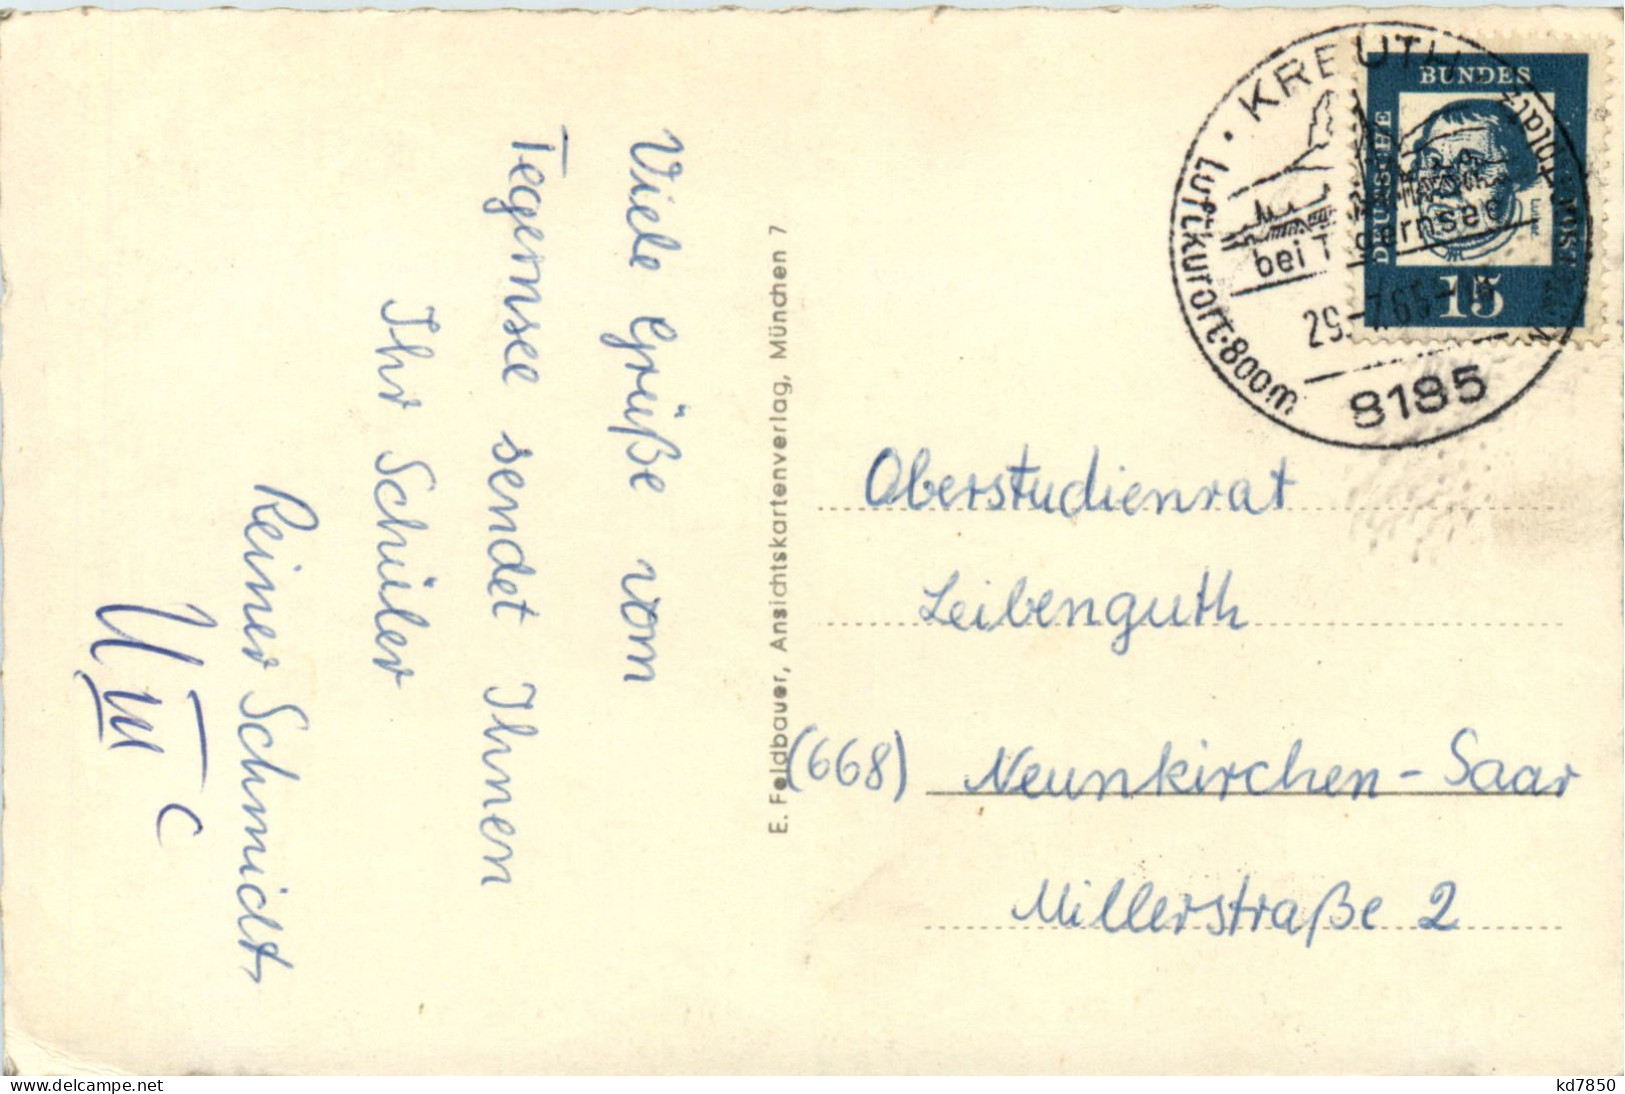 Viele Grüße vom
Tegernsee sendet Ihnen
Ihr Schüler
Reiner Schmidt,
U III c
E. Feldbauer, Ansichtskartenverlag, München 7
KREUTH
bei Tegernsee
29.-7.65-
8185
Luftkurort·800m
DEUTSCHE
BUNDES
Luther
15
Oberstudienrat
Leibenguth
(668) Neunkirchen-Saar
Millerstraße 2
www.delcampe.net
kd7850